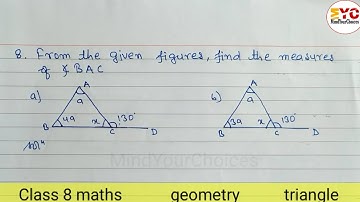 MYC
MindYourChoices
8. From the given figures, find the measures
of ∠BAC
a) A b) A
a a
4a x 130° 3a x 130°
B C D B C D
solⁿ
MindYourChoices
Class 8 maths geometry triangle